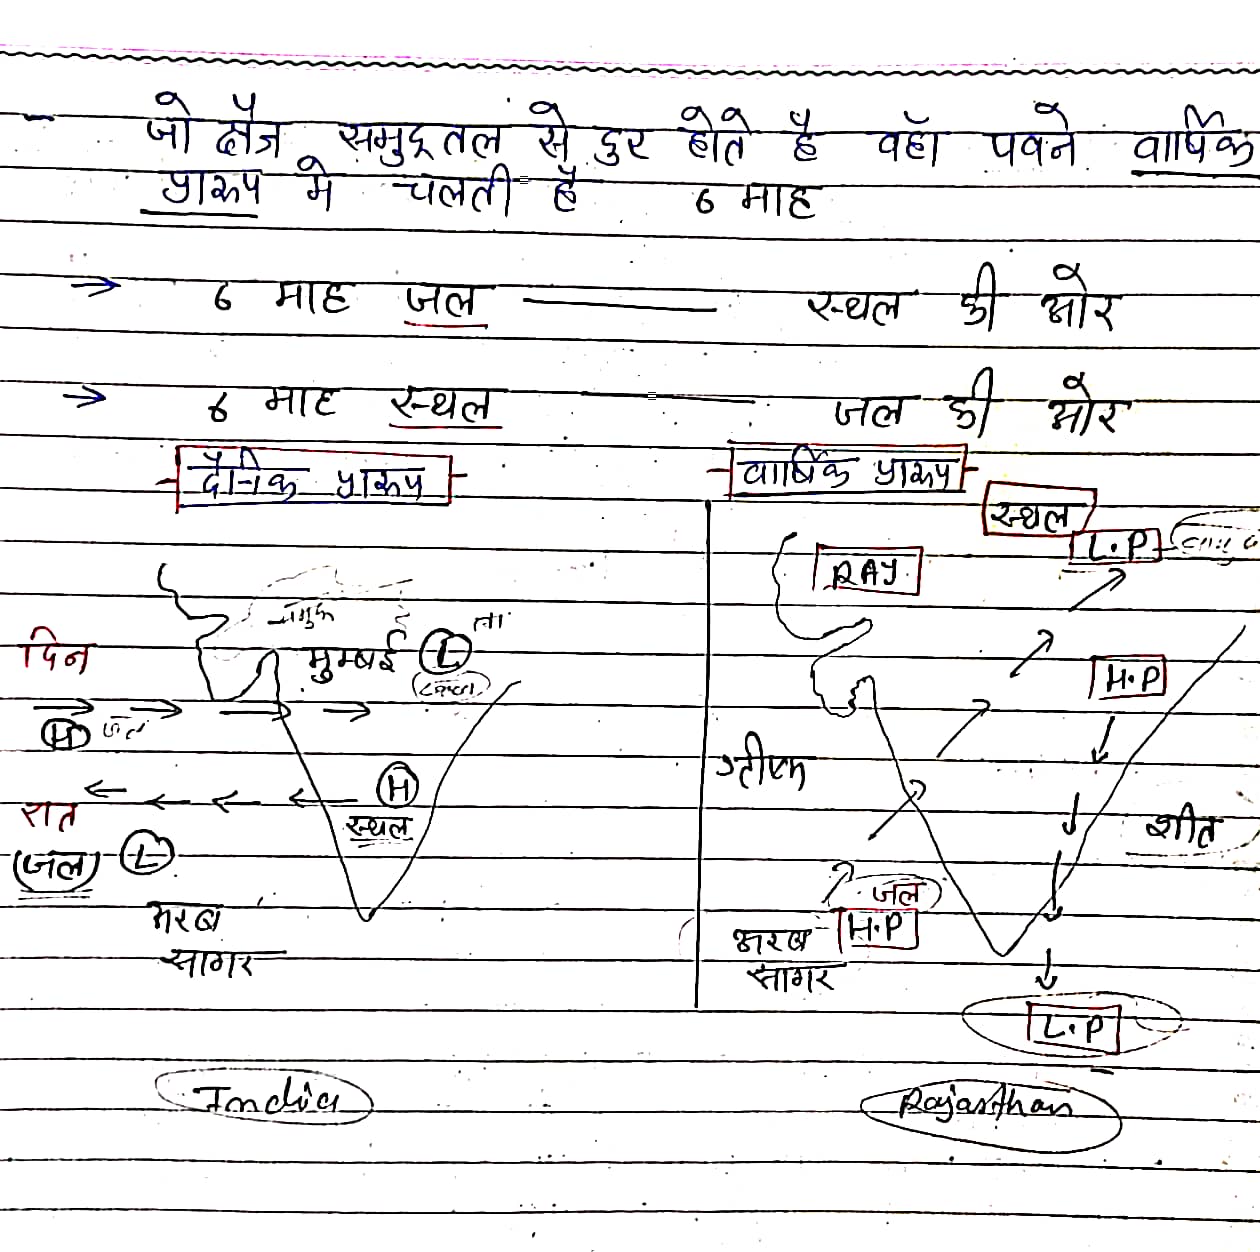 - जो क्षेत्र समुद्रतल से दुर होते है वहाँ पवने वार्षिक
प्रारूप मे चलती है 6 माह
→ 6 माह जल ——— स्थल की ओर
→ 6 माह स्थल ——— जल की ओर
दैनिक प्रारूप
वार्षिक प्रारूप
स्थल
L.P
RAJ.
दिन
मुम्बई L
H जल
H.P
ग्रीष्म
H
स्थल
रात
(जल) L
शीत
जल
H.P
अरब
सागर
अरब
सागर
L.P
India
Rajasthan